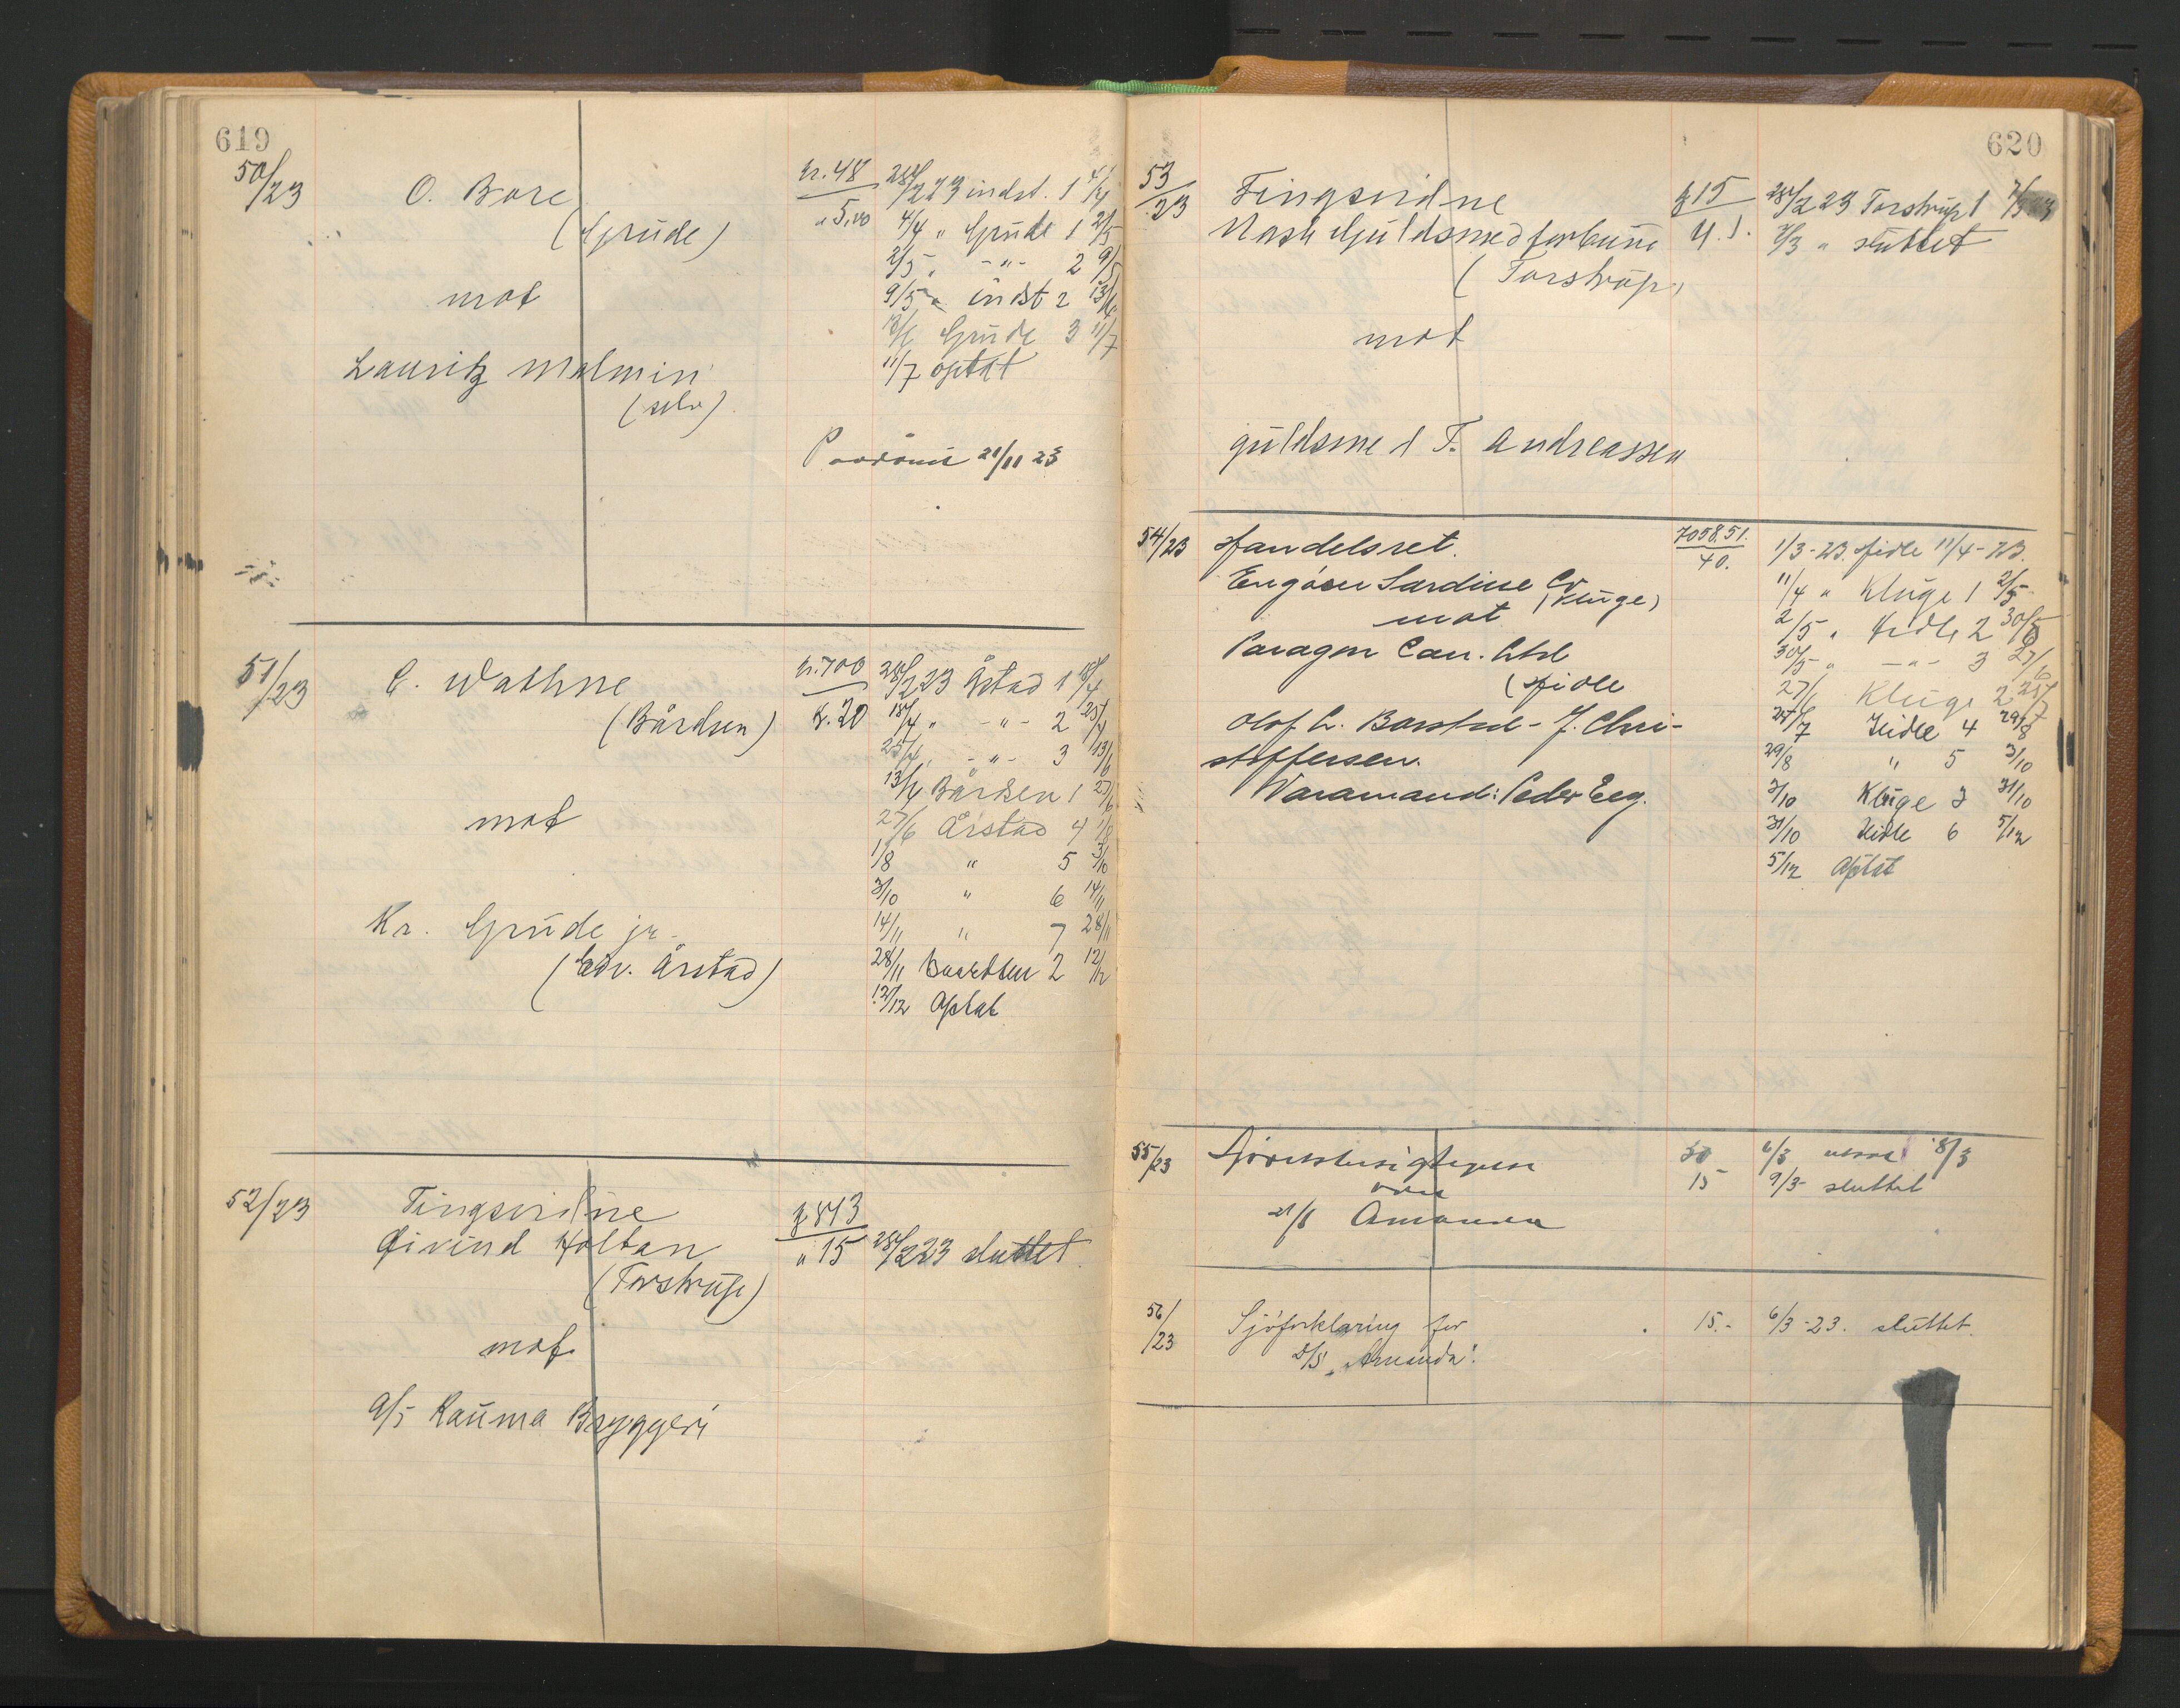 619
50/23
O. Bore
(Grude)
mot
Lauritz Malmin
(selv)
kr. 48
" 5,00
28/2 23 indst. 1 4/4
4/4 " Grude 1 2/5
2/5 " -"- 2 9/5
9/5 " indst 2 13/6
13/6 Grude 3 11/7
11/7 optat
21/11 23
51/23
E. Wathne
(Bårdsen)
mot
Kr. Grude jr.
(Edv. Årstad)
kr. 700
k. 20
28/2 23 Årstad 1 18/4
18/4 " -"- 2 25/4
25/4 " -"- 3 13/6
13/6 Bårdsen 1 27/6
27/6 Årstad 4 1/8
1/8 " 5 3/10
3/10 " 6 14/11
14/11 " 7 28/11
28/11 Baardsen 2 12/12
12/12 Optat
52/23
Tingsvidne
Øivind Holtan
(Torstrup)
mot
A/S Rauma Bryggeri
k 813
" 15
28/2 23 sluttet
620
53/23
Tingsvidne
Norsk Guldsmedforbund
(Torstrup)
mot
guldsmed T. Andreassen
k 15
28/2 23 Torstrup 1 7/3
7/3 " sluttet
54/23
Handelsret.
Engøsen Sardine Co
(Kluge)
mot
Paragon Can. Ltd
(Hidle
Olof L. Barstad - J. Chri-
stoffersen.
Waramand: Peder Eeg.
7058.51.
40.
1/3-23. Hidle 11/4-23.
11/4 " Kluge 1 2/5
2/5 " Hidle 2 30/5
30/5 " -"- 3 27/6
27/6 Kluge 2 25/7
25/7 Hidle 4 29/8
29/8 " 5 3/10
3/10 Kluge 3 31/10
31/10 Hidle 6 5/12
5/12 Optat
55/23
Amanda
50
15
6/3 8/3
9/3 sluttet
56/23
Sjøforklaring for
D/S "Amanda".
15.-
6/3-23. sluttet.